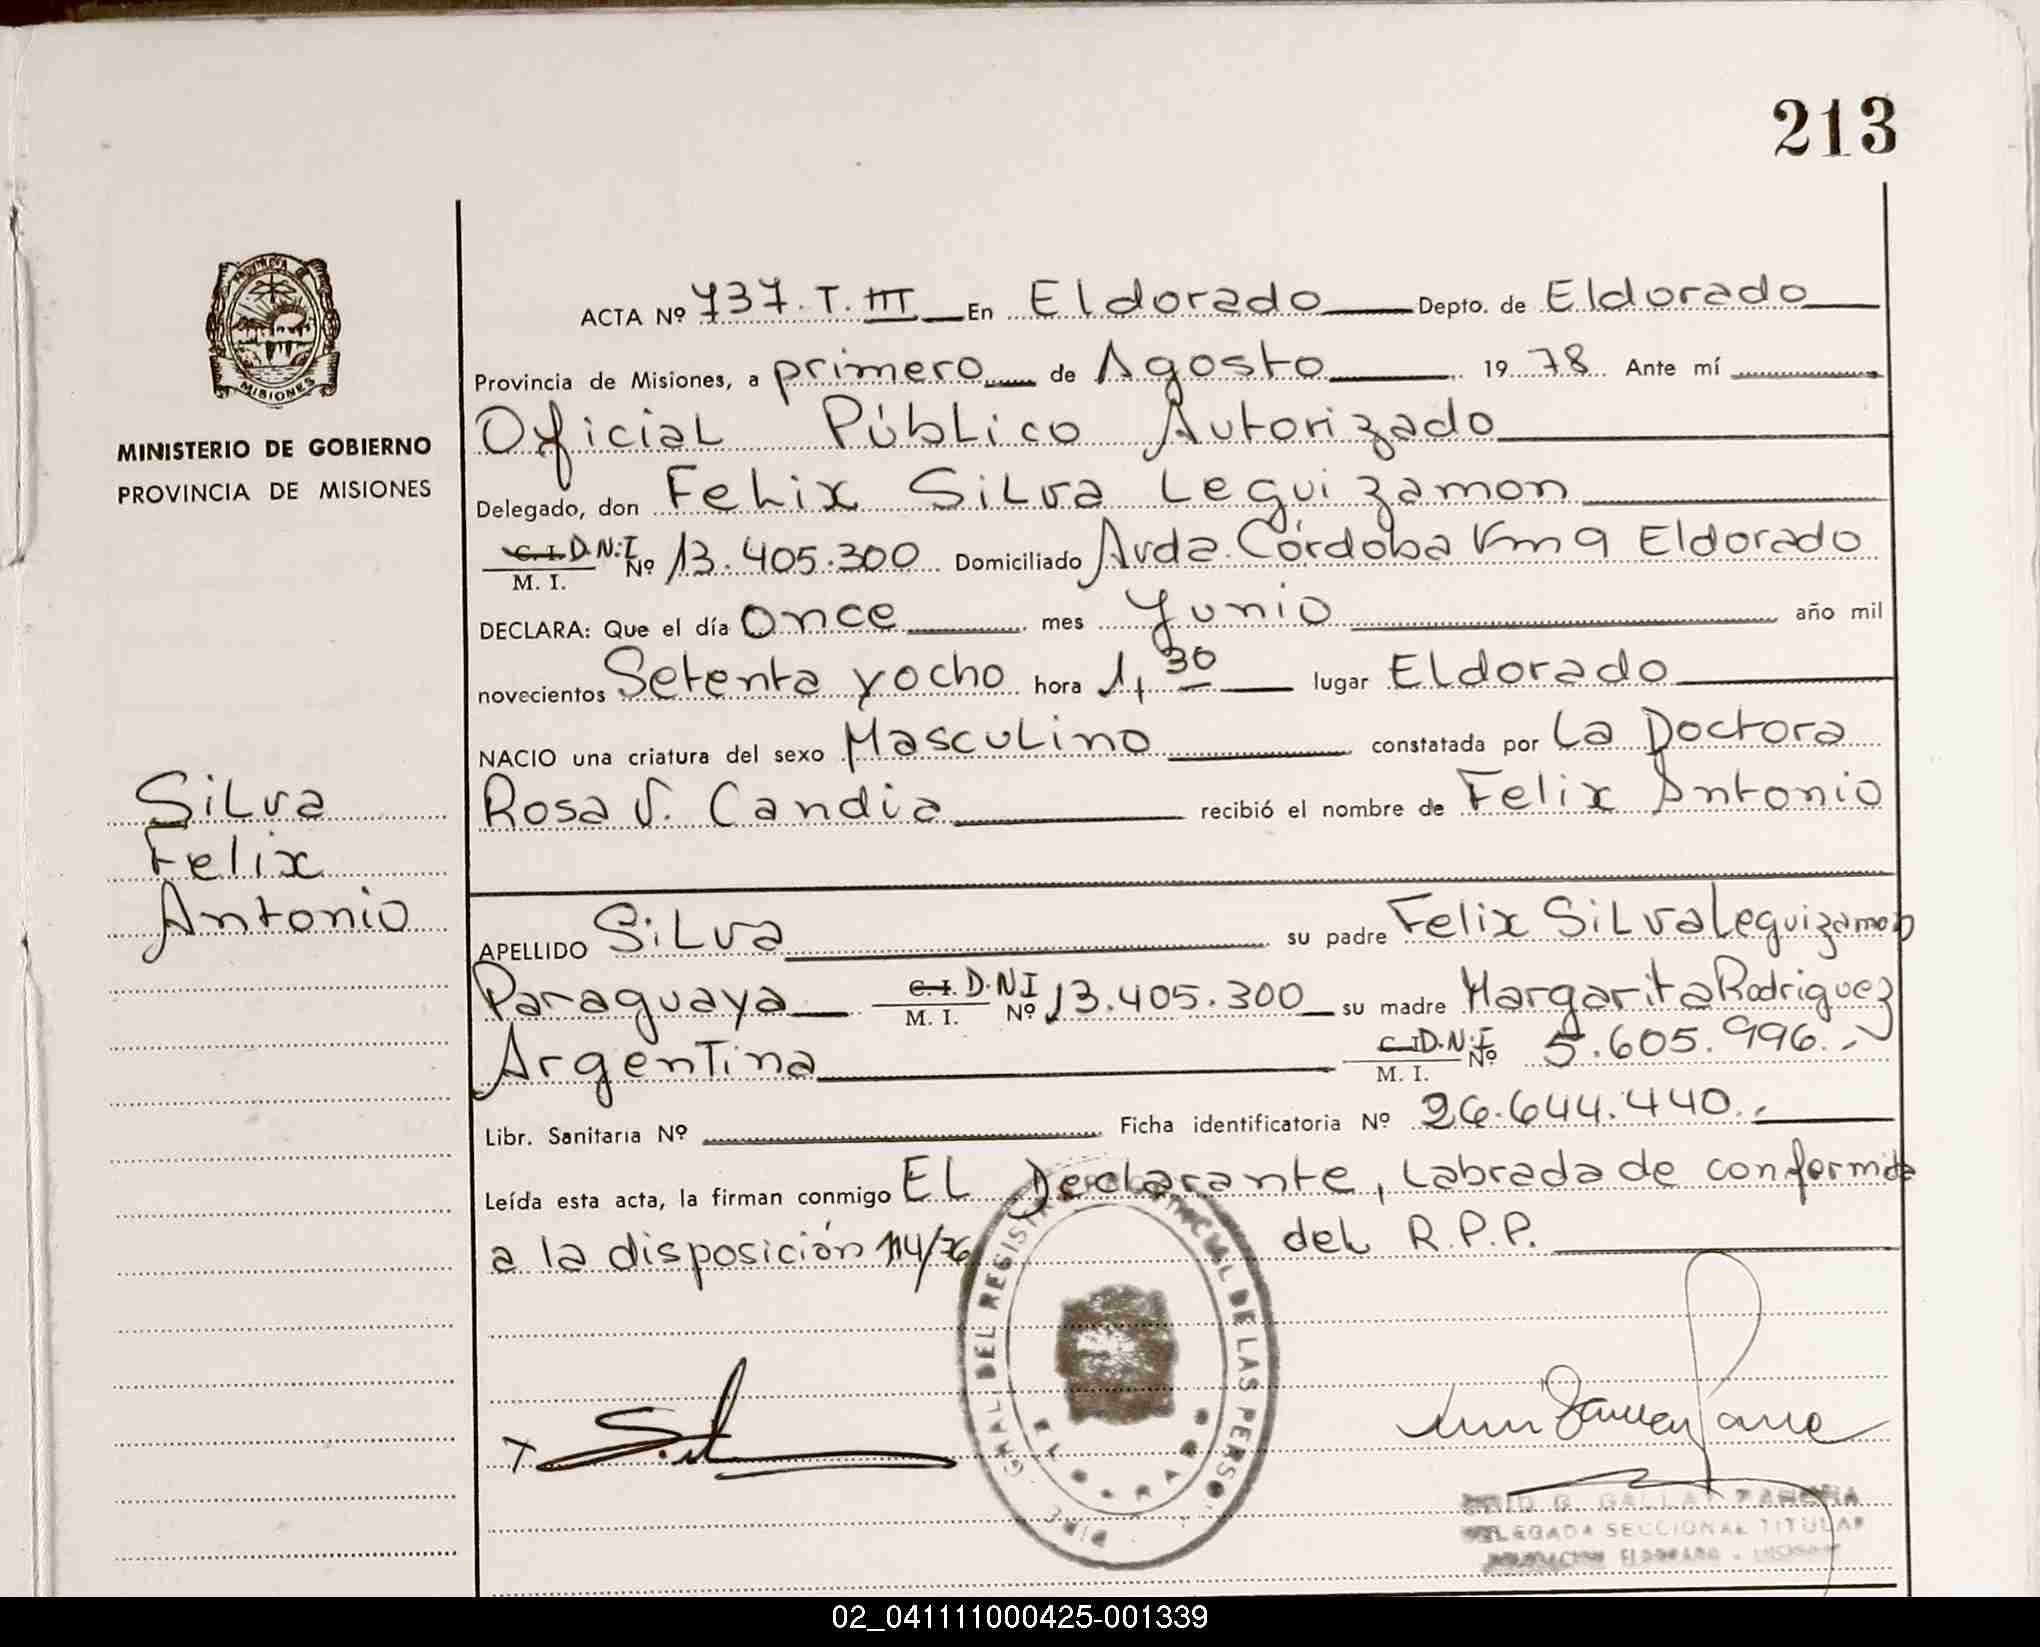 213
PROVINCIA DE
MISIONES
MINISTERIO DE GOBIERNO
PROVINCIA DE MISIONES
Silva
Felix
Antonio
ACTA Nº 737. T. III En Eldorado Depto. de Eldorado
Provincia de Misiones, a primero de Agosto 1978 Ante mí
Oficial Público Autorizado
Delegado, don Felix Silva Leguizamon
C. I. D.N.I. M. I. Nº 13.405.300 Domiciliado Avda. Córdoba Km 9 Eldorado
DECLARA: Que el día once mes Yunio año mil
novecientos Setenta y ocho hora 1,30 lugar Eldorado
NACIO una criatura del sexo Masculino constatada por La Doctora
Rosa V. Candia recibió el nombre de Felix Antonio
APELLIDO Silva su padre Felix Silva Leguizamon
Paraguaya C. I. D.N.I M. I. Nº 13.405.300 su madre Margarita Rodriguez
Argentina C. I. D.N.I. M. I. Nº 5.605.996.-
Libr. Sanitaria Nº Ficha identificatoria Nº 26.644.440.-
Leída esta acta, la firman conmigo El Declarante, Labrada de conformida
a la disposición 114/76 del R.P.P.
DIRE. GRAL DEL REGIST PROVINCIAL DE LAS PERSO
DELEGADA SECCIONAL TITULAR
ELDORADO - MISIONES
02_041111000425-001339